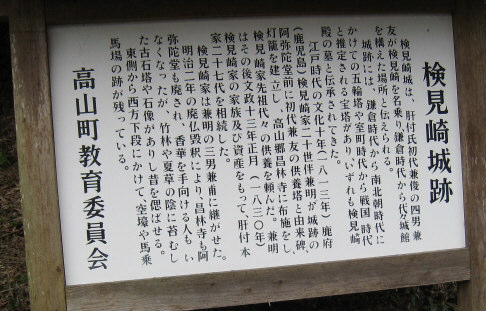 検見崎城跡
検見崎城は、肝付氏初代兼俊の四男兼
友が検見崎を名乗り鎌倉時代から代々城館
を構えた場所と伝えられる。
城跡には、鎌倉時代から南北朝時代に
かけての五輪塔や室町時代から戦国時代
と推定される宝塔があり、いずれも検見崎
殿の墓と伝承されてきた。
江戸時代の文化十年（一八一三年）鹿府
（鹿児島）検見崎家二十世伴兼明が城跡の
阿弥陀堂前に初代兼友の供養塔と由来碑、
灯籠を建立し、高山郷昌林寺に布施をし
検見崎家先祖代々の供養を頼んだ。兼明
はその後文政十三年正月（一八三〇年）
検見崎家の家族及び資産をもって、肝付本
家二十七代を相続した。
検見崎家は兼明の三男兼甫に継がせた。
明治二年の廃仏毀釈により、昌林寺も阿
弥陀堂も廃され、香華を手向ける人もい
なくなったが、竹林や夏草の陰に苔むし
た古石塔や石像があり昔を偲ばせる。
東側から西方下段にかけて空壕や馬乗
馬場の跡が残っている。
高山町教育委員会